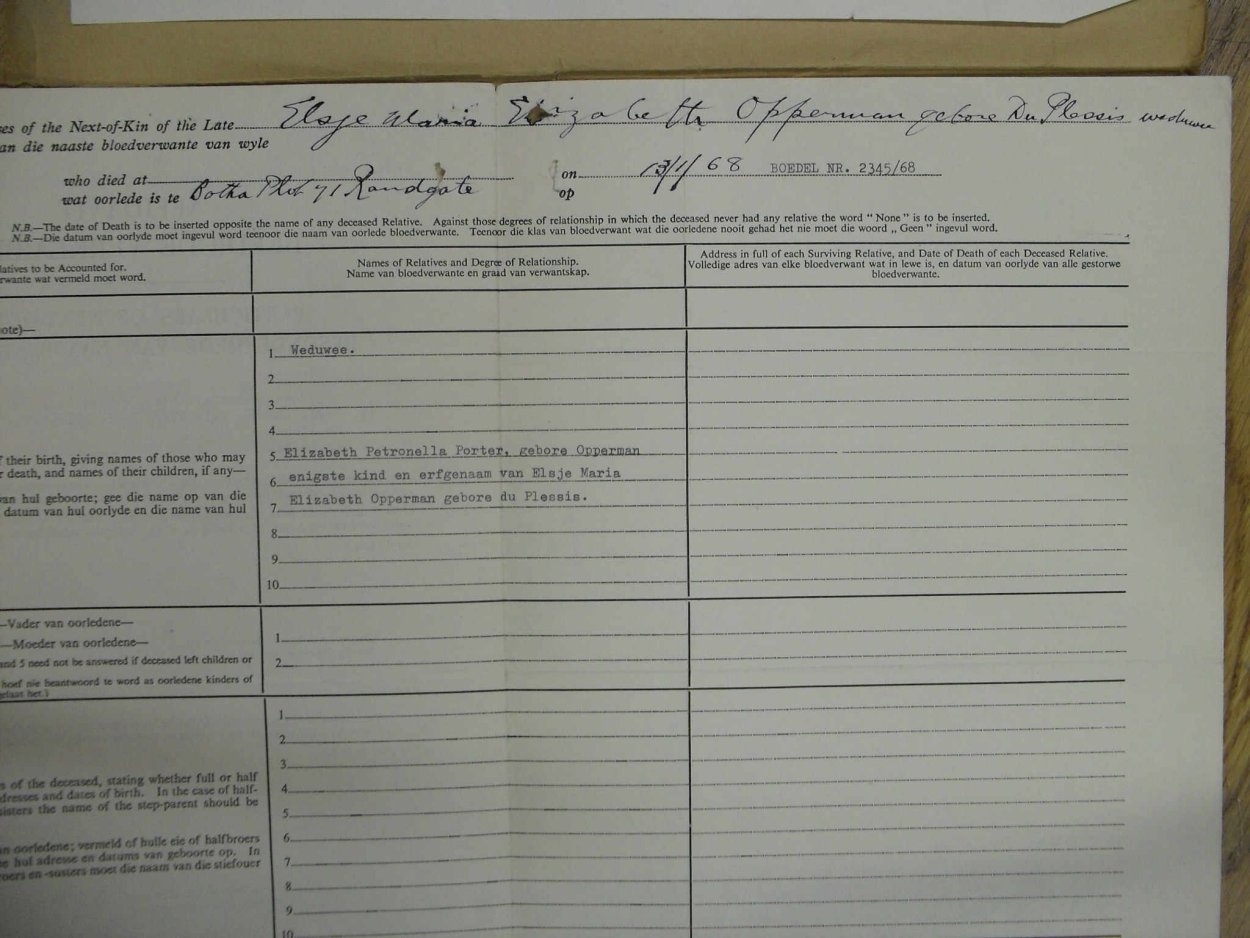 es of the Next-of-Kin of the Late Elsje Maria Elizabeth Opperman gebore Du Plessis weduwee
an die naaste bloedverwante van wyle
who died at on 13/1/68 BOEDEL NR. 2345/68
wat oorlede is te Botha Plot 71 Randgate op
N.B.—The date of Death is to be inserted opposite the name of any deceased Relative. Against those degrees of relationship in which the deceased never had any relative the word "None" is to be inserted.
N.B.—Die datum van oorlyde moet ingevul word teenoor die naam van oorlede bloedverwante. Teenoor die klas van bloedverwant wat die oorledene nooit gehad het nie moet die woord „Geen" ingevul word.
latives to be Accounted for.
rwante wat vermeld moet word.
Names of Relatives and Degree of Relationship.
Name van bloedverwante en graad van verwantskap.
Address in full of each Surviving Relative, and Date of Death of each Deceased Relative.
Volledige adres van elke bloedverwant wat in lewe is, en datum van oorlyde van alle gestorwe
bloedverwante.
ote)—
1 Weduwee.
2
3
4
5 Elizabeth Petronella Porter, gebore Opperman
6 enigste kind en erfgenaam van Elsje Maria
7 Elizabeth Opperman gebore du Plessis.
8
9
10
f their birth, giving names of those who may
r death, and names of their children, if any—
van hul geboorte; gee die name op van die
datum van hul oorlyde en die name van hul
—Vader van oorledene—
—Moeder van oorledene—
and 5 need not be answered if deceased left children or
hoef nie beantwoord te word as oorledene kinders of
gelaat het.)
1
2
s of the deceased, stating whether full or half
dresses and dates of birth. In the case of half-
sisters the name of the step-parent should be
an oorledene; vermeld of hulle eie of halfbroers
e hul adresse en datums van geboorte op. In
roers en -susters moet die naam van die stiefouer
1
2
3
4
5
6
7
8
9
10